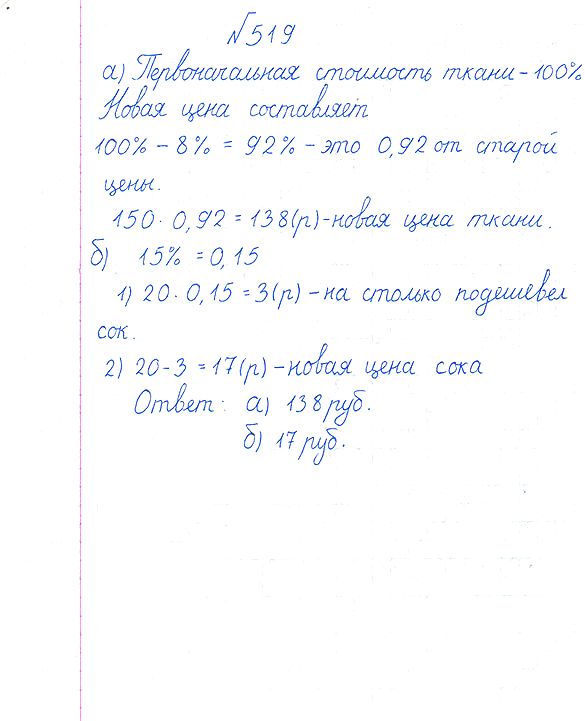 №519
а) Первоначальная стоимость ткани - 100%
Новая цена составляет
100% - 8% = 92% - это 0,92 от старой
цены.
150 · 0,92 = 138(р) - новая цена ткани.
б) 15% = 0,15
1) 20 · 0,15 = 3(р) - на столько подешевел
сок.
2) 20 - 3 = 17(р) - новая цена сока
Ответ: а) 138 руб.
б) 17 руб.